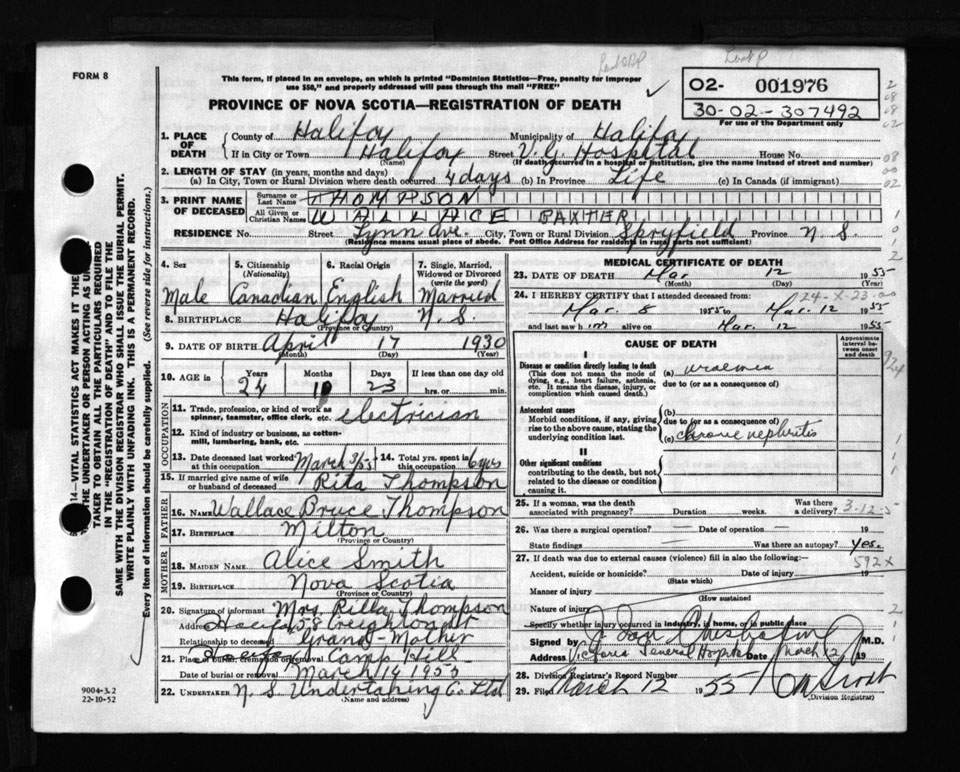 FORM 8
Look P
This form, if placed in an envelope, on which is printed "Dominion Statistics—Free, penalty for improper
use $50," and properly addressed will pass through the mail "FREE"
PROVINCE OF NOVA SCOTIA—REGISTRATION OF DEATH
02- 001976
30-02-307492
For use of the Department only
1. PLACE OF DEATH County of Halifax Municipality of Halifax
If in City or Town Halifax Street V.G. Hospital House No.
(Name) (If death occurred in a hospital or institution, give the name instead of street and number)
2. LENGTH OF STAY (in years, months and days)
(a) In City, Town or Rural Division where death occurred 4 days (b) In Province Life (c) In Canada (if immigrant)
3. PRINT NAME OF DECEASED Surname or Last Name THOMPSON
All Given or Christian Names WALLACE BAXTER
RESIDENCE No. Street Lynn Ave. City, Town or Rural Division Spryfield Province N.S.
(Residence means usual place of abode. Post Office Address for residents in rural parts not sufficient)
4. Sex Male
5. Citizenship (Nationality) Canadian
6. Racial Origin English
7. Single, Married, Widowed or Divorced (write the word) Married
8. BIRTHPLACE Halifax N.S.
(Province or Country)
9. DATE OF BIRTH April 17 1930
(Month) (Day) (Year)
10. AGE in Years 24 Months 10 Days 23 If less than one day old hrs. or min.
OCCUPATION
11. Trade, profession, or kind of work as spinner, teamster, office clerk, etc. electrician
12. Kind of industry or business, as cotton-mill, lumbering, bank, etc.
13. Date deceased last worked at this occupation March 3/55 14. Total yrs. spent in this occupation 6 yrs
15. If married give name of wife or husband of deceased Rita Thompson
FATHER
16. NAME Wallace Bruce Thompson
17. BIRTHPLACE Milton
(Province or Country)
MOTHER
18. MAIDEN NAME Alice Smith
19. BIRTHPLACE Nova Scotia
(Province or Country)
20. Signature of informant Mrs. Rilla Thompson
Address Halifax 58 Creighton St
Relationship to deceased Grand-Mother
21. Place of burial, cremation or removal Halifax Camp Hill
Date of burial or removal March 14 1955
22. UNDERTAKER N.S. Undertaking Co. Ltd
(Name and address)
MEDICAL CERTIFICATE OF DEATH
23. DATE OF DEATH Mar 12 1955
(Month) (Day) (Year)
24. I HEREBY CERTIFY that I attended deceased from:
24-X-23-
Mar. 8 1955 to Mar. 12 1955
and last saw him alive on Mar. 12 1955
CAUSE OF DEATH
Approximate interval between onset and death
I
Disease or condition directly leading to death (a) uraemia
(This does not mean the mode of dying, e.g., heart failure, asthenia, etc. It means the disease, injury, or complication which caused death.)
due to (or as a consequence of)
Antecedent causes
Morbid conditions, if any, giving rise to the above cause, stating the underlying condition last.
(b)
due to (or as a consequence of)
(c) chronic nephritis
II
Other significant conditions
contributing to the death, but not related to the disease or condition causing it.
25. If a woman, was the death associated with pregnancy? Duration weeks. Was there a delivery?
3-12-5
26. Was there a surgical operation? — Date of operation — 19
State findings — Was there an autopsy? yes.
27. If death was due to external causes (violence) fill in also the following:—
592x
Accident, suicide or homicide? Date of injury 19
(State which)
Manner of injury
(How sustained)
Nature of injury
Specify whether injury occurred in industry, in home, or in public place
Signed by M.D.
Address Victoria General Hospital Date March 12 19
28. Division Registrar's Record Number
29. Filed March 12 1955
(Division Registrar)
9004-3.2
22-10-52
14—VITAL STATISTICS ACT MAKES IT THE
THE UNDERTAKER OR PERSON ACTING AS
TAKER TO OBTAIN ALL THE PARTICULARS REQUIRED
IN THE "REGISTRATION OF DEATH" AND TO FILE THE
SAME WITH THE DIVISION REGISTRAR WHO SHALL ISSUE THE BURIAL PERMIT.
WRITE PLAINLY WITH UNFADING INK. THIS IS A PERMANENT RECORD.
Every item of information should be carefully supplied. (See reverse side for instructions.)